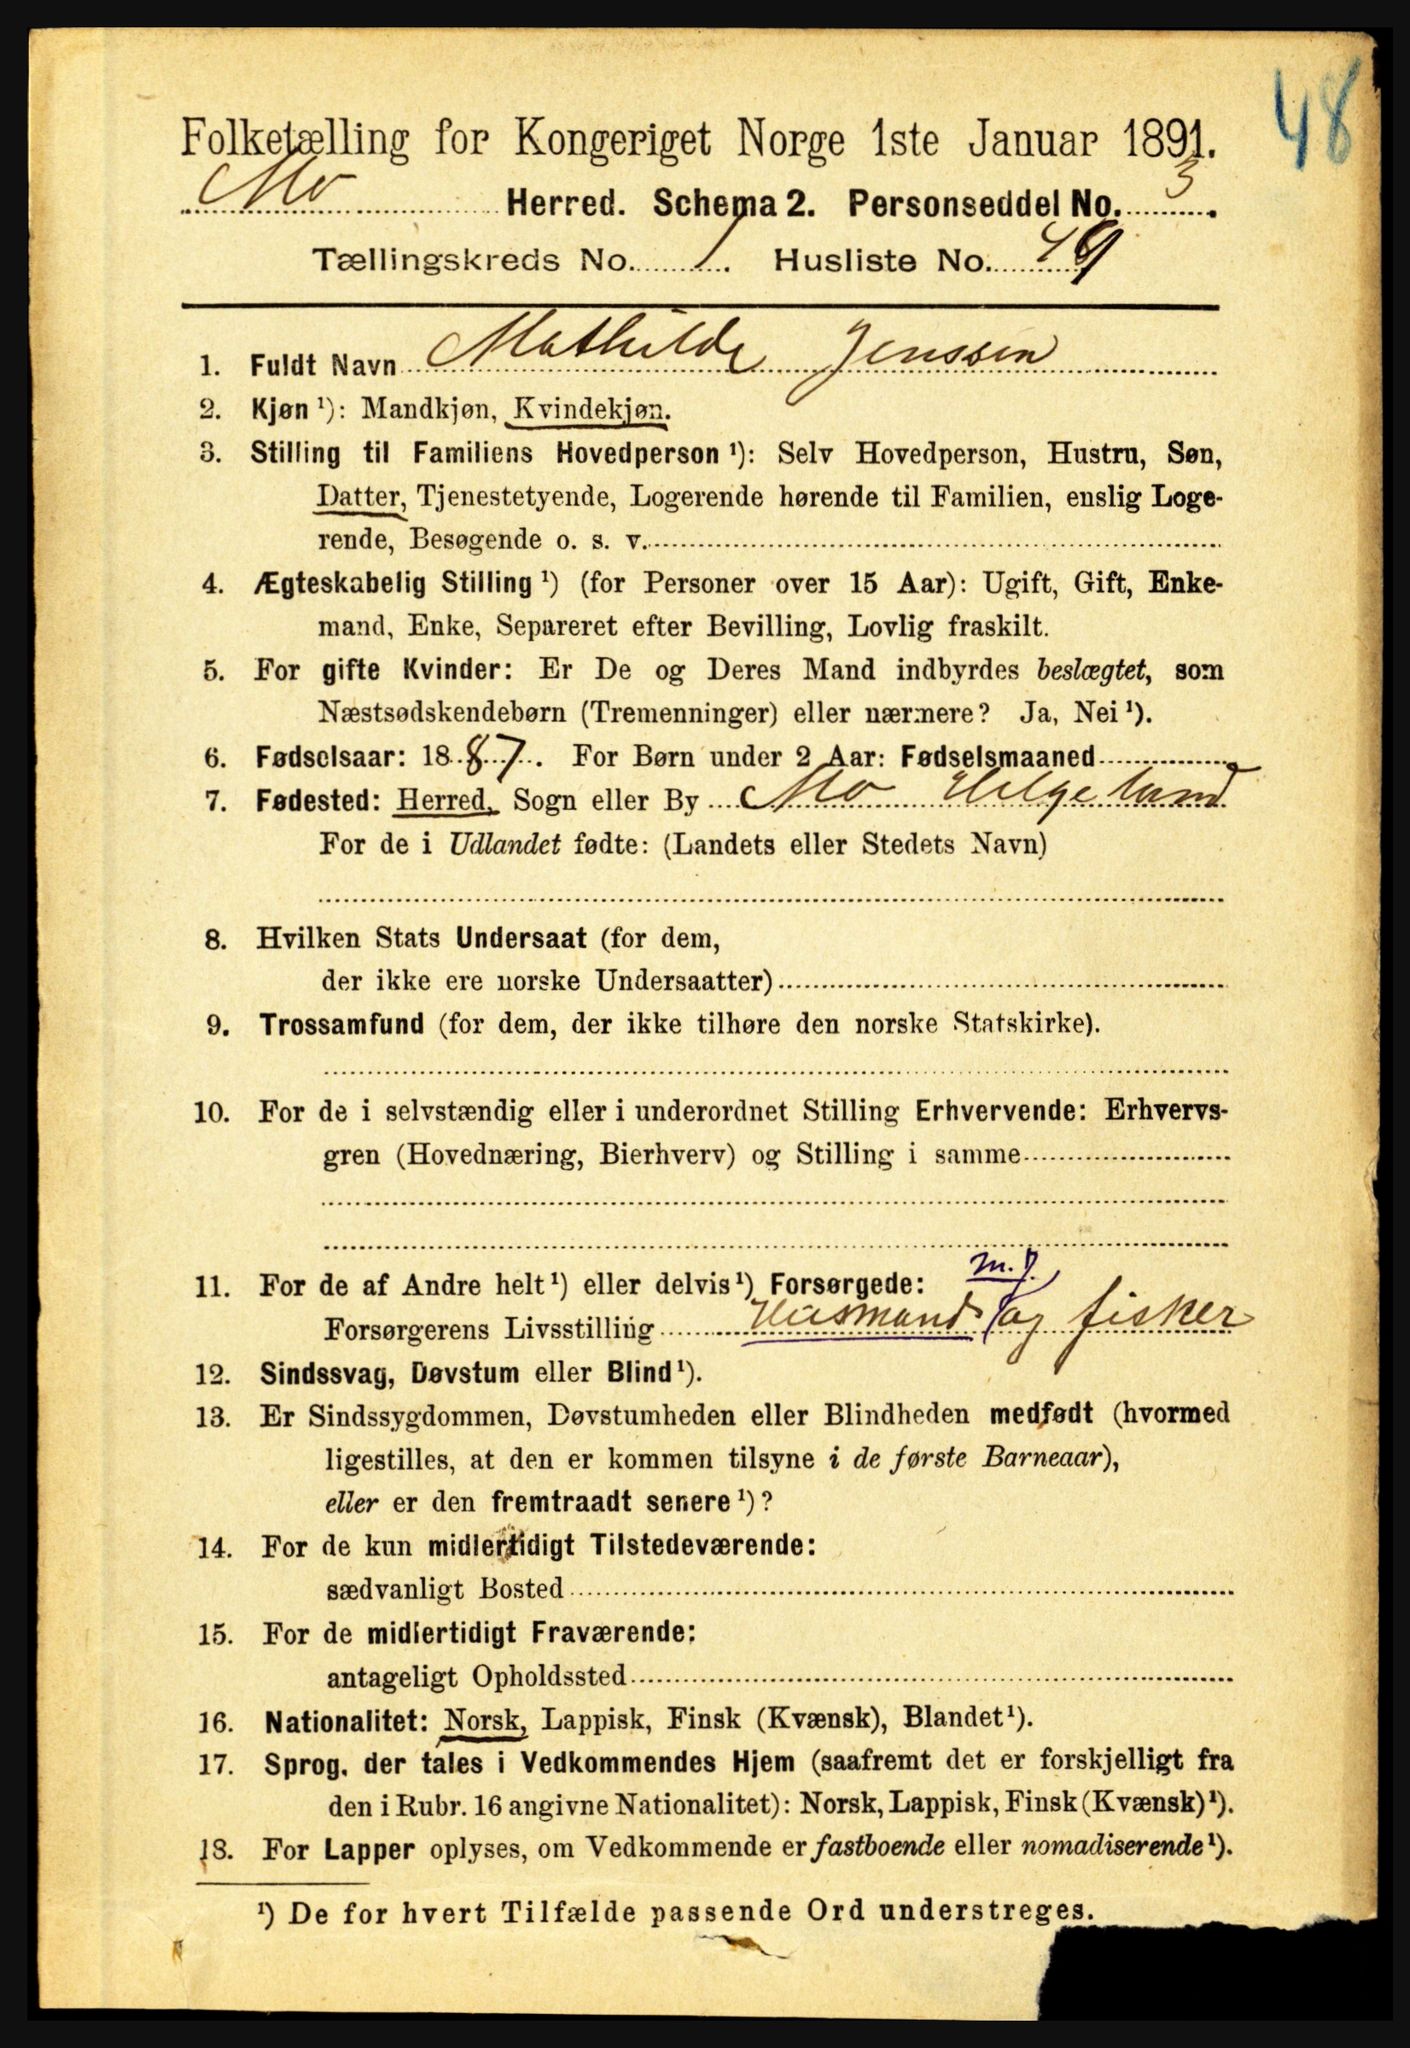 48
Folketælling for Kongeriget Norge 1ste Januar 1891.
Mo Herred. Schema 2. Personseddel No. 3.
Tællingskreds No. 1. Husliste No. 49
1. Fuldt Navn Mathilde Jenssen
2. Kjøn¹): Mandkjøn, Kvindekjøn.
3. Stilling til Familiens Hovedperson¹): Selv Hovedperson, Hustru, Søn,
Datter, Tjenestetyende, Logerende hørende til Familien, enslig Loge-
rende, Besøgende o. s. v.
4. Ægteskabelig Stilling¹) (for Personer over 15 Aar): Ugift, Gift, Enke-
mand, Enke, Separeret efter Bevilling, Lovlig fraskilt.
5. For gifte Kvinder: Er De og Deres Mand indbyrdes beslægtet, som
Næstsødskendebørn (Tremenninger) eller nærmere? Ja, Nei¹).
6. Fødselsaar: 1887. For Børn under 2 Aar: Fødselsmaaned
7. Fødested: Herred, Sogn eller By Mo Helgeland
For de i Udlandet fødte: (Landets eller Stedets Navn)
8. Hvilken Stats Undersaat (for dem,
der ikke ere norske Undersaatter)
9. Trossamfund (for dem, der ikke tilhøre den norske Statskirke).
10. For de i selvstændig eller i underordnet Stilling Erhvervende: Erhvervs-
gren (Hovednæring, Bierhverv) og Stilling i samme
11. For de af Andre helt¹) eller delvis¹) Forsørgede: m. j.
Forsørgerens Livsstilling Husmand og fisker
12. Sindssvag, Døvstum eller Blind¹).
13. Er Sindssygdommen, Døvstumheden eller Blindheden medfødt (hvormed
ligestilles, at den er kommen tilsyne i de første Barneaar),
eller er den fremtraadt senere¹)?
14. For de kun midlertidigt Tilstedeværende:
sædvanligt Bosted
15. For de midlertidigt Fraværende:
antageligt Opholdssted
16. Nationalitet: Norsk, Lappisk, Finsk (Kvænsk), Blandet¹).
17. Sprog, der tales i Vedkommendes Hjem (saafremt det er forskjelligt fra
den i Rubr. 16 angivne Nationalitet): Norsk, Lappisk, Finsk (Kvænsk)¹).
18. For Lapper oplyses, om Vedkommende er fastboende eller nomadiserende¹).
¹) De for hvert Tilfælde passende Ord understreges.